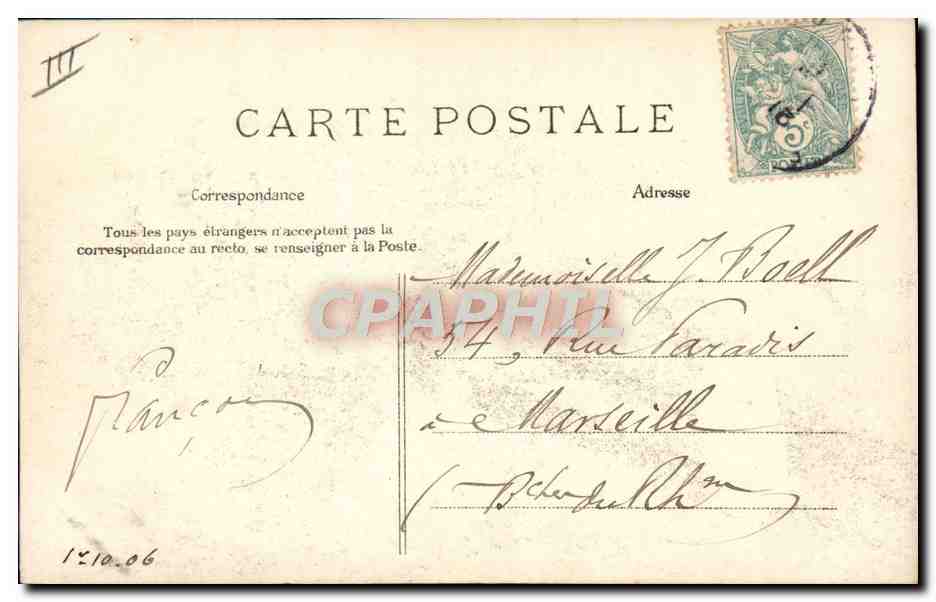 III
CARTE POSTALE
5c
Correspondance
Adresse
Tous les pays étrangers n'acceptent pas la
correspondance au recto, se renseigner à la Poste.
Mademoiselle J. Boell
54, Rue Paradis
à Marseille
(Bches du Rhne)
François
1r 10.06
CPAPHIL